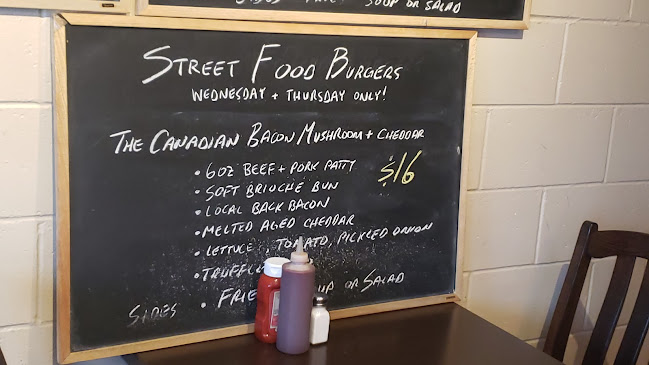 SOUP OR SALAD
STREET FOOD BURGERS
WEDNESDAY + THURSDAY ONLY!
THE CANADIAN BACON MUSHROOM + CHEDDAR
$16
• 6OZ BEEF + PORK PATTY
• SOFT BRIOCHE BUN
• LOCAL BACK BACON
• MELTED AGED CHEDDAR
• LETTUCE, TOMATO, PICKLED ONION
SIDES • OR SALAD